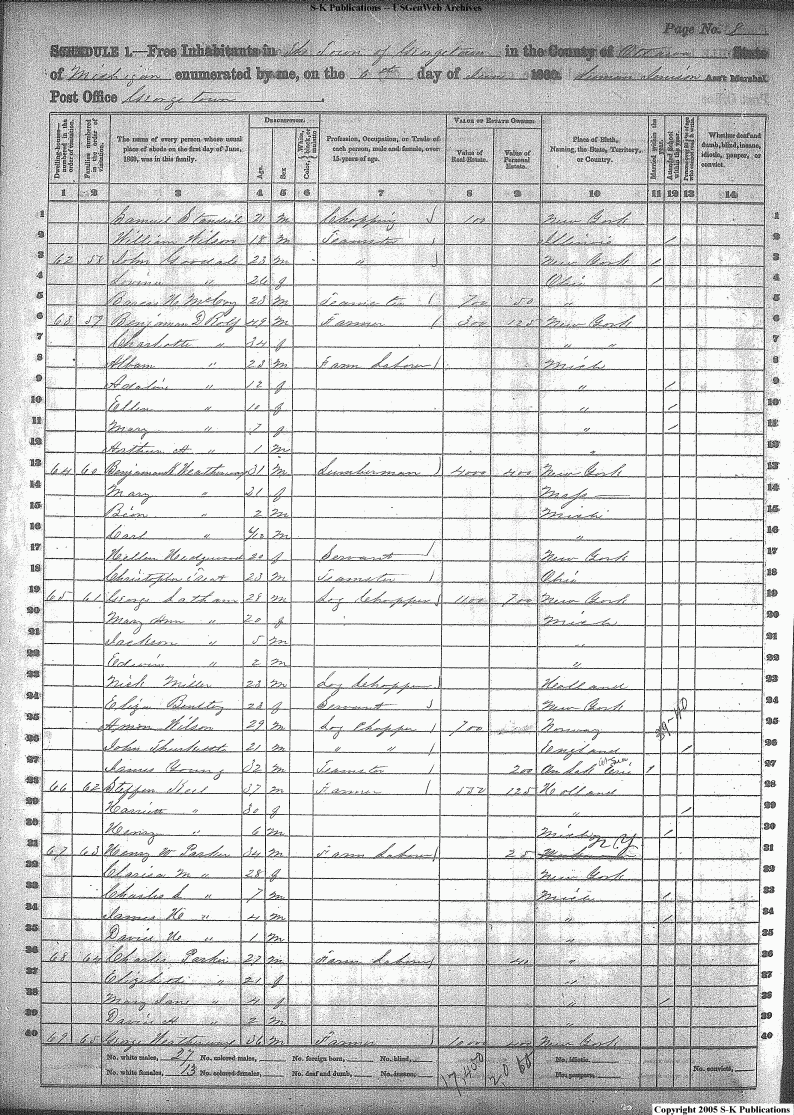 S-K Publications -- USGenWeb Archives
Page No. 8
SCHEDULE 1.—Free Inhabitants in The Town of Georgetown in the County of Ottawa State
of Michigan enumerated by me, on the 6th day of June 1860. Ass't Marshal.
Post Office Georgetown
Dwelling-houses—numbered in the order of visitation.
Families numbered in the order of visitation.
The name of every person whose usual place of abode on the first day of June, 1860, was in this family.
Description.
Age.
Sex
Color, White, black, or mulatto
Profession, Occupation, or Trade of each person, male and female, over 15 years of age.
Value of Estate Owned.
Value of Real Estate.
Value of Personal Estate.
Place of Birth, Naming the State, Territory, or Country.
Married within the year.
Attended School within the year.
Whether deaf and dumb, blind, insane, idiotic, pauper, or convict.
1 2 3 4 5 6 7 8 9 10 11 12 13 14
1 Samuel Standish 21 m Chopping 100 New York 1
2 William Wilson 18 m Teamster Illinois / 2
3 62 58 John Goodale 23 m " New York / 3
4 " 26 f Ohio / 4
5 McCoy 23 m Teamster 700 50 " 5
6 63 59 Benjamin D Rolf 49 m Farmer 300 125 New York 6
7 Charlotte " 34 f " " 7
8 Albam " 23 m Farm Laborer Mich 8
9 Adaline " 12 f " / 9
10 Ellen " 10 f " / 10
11 Mary " 7 f " / 11
12 Arthur A " 1 m " 12
13 64 60 Benjamin Heatherway 31 m Lumberman 4000 400 New York 13
14 Mary " 21 f Mass 14
15 " 2 m Mich 15
16 Carl " /12 m " 16
17 Hellen 20 f Servant New York 17
18 Christopher 23 m Teamster Ohio 18
19 65 61 George Latham 28 m Log Chopper 1100 700 New York 19
20 Mary Ann " 20 f Mich 20
21 Jackson " 5 m " 21
22 Edwin " 2 m " 22
23 Nick Miller 23 m Log Chopper Holland 23
24 Eliza 23 f Servant New York 24
25 Amon Wilson 29 m Log Chopper 700 Norway 25
26 John 21 m " " England / 26
27 James Young 32 m Teamster 200 / 27
28 66 62 Steffen 37 m Farmer 125 Holland 28
29 Harriett " 30 f " / 29
30 Henry " 6 m Mich / 30
31 67 63 Henry W Parker 34 m Farm Laborer 25 N Y 31
32 Clarisa M " 28 f New York 32
33 Charles S " 7 m Mich / 33
34 James H " 4 m " / 34
35 David " 1 m " 35
36 68 64 Charles Parker 27 m Farm Laborer 40 " 36
37 Elizabeth " 21 f " 37
38 Mary Jane " 4 f " / 38
39 David A " 2 m " 39
40 69 65 George Heatherway 36 m Farmer 1000 400 New York 40
39-40
No. white males, 27 No. colored males, No. foreign born, No. blind, No. idiotic,
No. white females, 13 No. colored females, No. deaf and dumb, No. insane, No. paupers, No. convicts,
17,400
Copyright 2005 S-K Publications